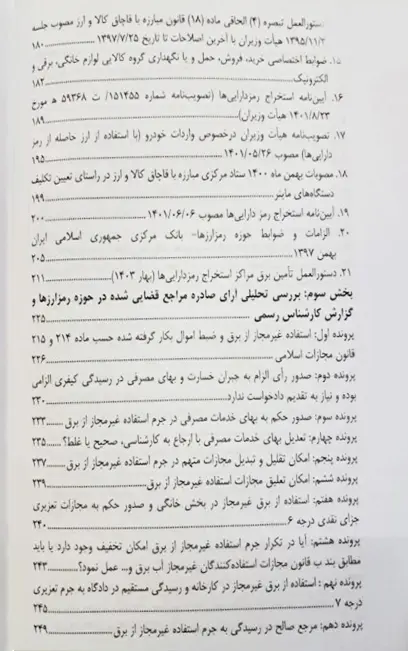 دستورالعمل تبصره (۴) الحاقی ماده (۱۸) قانون مبارزه با قاچاق کالا و ارز مصوب جلسه
۱۳۹۵/۱۱/۲ هیأت وزیران با آخرین اصلاحات تا تاریخ ۱۳۹۷/۷/۲۵ ........ ۱۸۰
۱۵. ضوابط اختصاصی خرید، فروش، حمل و یا نگهداری گروه کالایی لوازم خانگی، برقی و
الکترونیک ........ ۱۸۲
۱۶. آیین‌نامه استخراج رمزدارایی‌ها (تصویب‌نامه شماره ۱۵۱۴۵۵/ ت ۵۹۳۶۸ هـ مورخ
۱۴۰۱/۸/۲۳ هیأت وزیران) ........ ۱۸۹
۱۷. تصویب‌نامه هیأت وزیران درخصوص واردات خودرو (با استفاده از ارز حاصله از رمز
دارایی‌ها) مصوب ۱۴۰۱/۰۵/۲۶ ........ ۱۹۵
۱۸. مصوبات بهمن ماه ۱۴۰۰ ستاد مرکزی مبارزه با قاچاق کالا و ارز در راستای تعیین تکلیف
دستگاه‌های ماینر ........ ۱۹۹
۱۹. آیین‌نامه استخراج رمز دارایی‌ها مصوب ۱۴۰۱/۰۶/۰۶ ........ ۲۰۰
۲۰. الزامات و ضوابط حوزه رمزارزها- بانک مرکزی جمهوری اسلامی ایران
بهمن ۱۳۹۷ ........ ۲۰۵
۲۱. دستورالعمل تأمین برق مراکز استخراج رمزدارایی‌ها (بهار ۱۴۰۳) ........ ۲۱۱
بخش سوم: بررسی تحلیلی آرای صادره مراجع قضایی شده در حوزه رمزارزها و
گزارش کارشناس رسمی ........ ۲۲۵
پرونده اول: استفاده غیرمجاز از برق و ضبط اموال بکار گرفته شده حسب ماده ۲۱۴ و ۲۱۵
قانون مجازات اسلامی ........ ۲۲۶
پرونده دوم: صدور رأی الزام به جبران خسارت و بهای مصرفی در رسیدگی کیفری الزامی
بوده و نیاز به تقدیم دادخواست ندارد ........ ۲۳۰
پرونده سوم: صدور حکم به بهای خدمات مصرفی در جرم استفاده غیرمجاز از برق ... ۲۳۳
پرونده چهارم: تعدیل بهای خدمات مصرفی با ارجاع به کارشناسی، صحیح یا غلط؟ .... ۲۳۵
پرونده پنجم: امکان تقلیل و تبدیل مجازات متهم در جرم استفاده غیرمجاز از برق ....... ۲۳۷
پرونده ششم: امکان تعلیق مجازات استفاده غیرمجاز از برق ........ ۲۳۹
پرونده هفتم: استفاده از برق غیرمجاز در بخش خانگی و صدور حکم به مجازات تعزیری
جزای نقدی درجه ۶ ........ ۲۴۰
پرونده هشتم: آیا در تکرار جرم استفاده غیرمجاز از برق امکان تخفیف وجود دارد یا باید
مطابق بند ب قانون مجازات استفاده‌کنندگان غیرمجاز آب برق و... عمل نمود؟ ........ ۲۴۳
پرونده نهم : استفاده از برق غیرمجاز در کارخانه و رسیدگی مستقیم در دادگاه به جرم تعزیری
درجه ۷ ........ ۲۴۵
پرونده دهم: مرجع صالح در رسیدگی به جرم استفاده غیرمجاز از برق ........ ۲۴۹